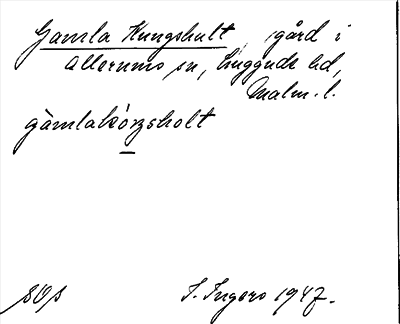 Gamla Kungshult, gård i
Allerums sn, Luggude hd,
Malm. l.
gàmlakóŋsholt
SOS S. Ingers 1947.